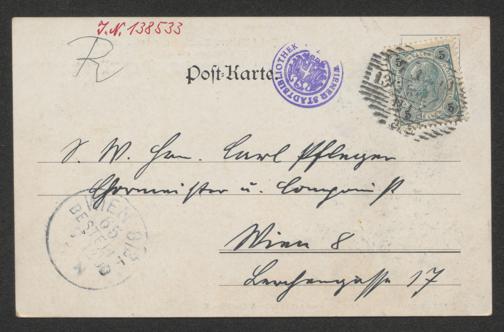 J.N. 138533
R
Post-Karte
WIENER STADTBIBLIOTHEK
5 5
13
S. W. Hrn. Carl Pfleger
Chormeister u. Componist
Wien 8
Lerchengasse 17
WIEN 8/1
65
BESTELLT